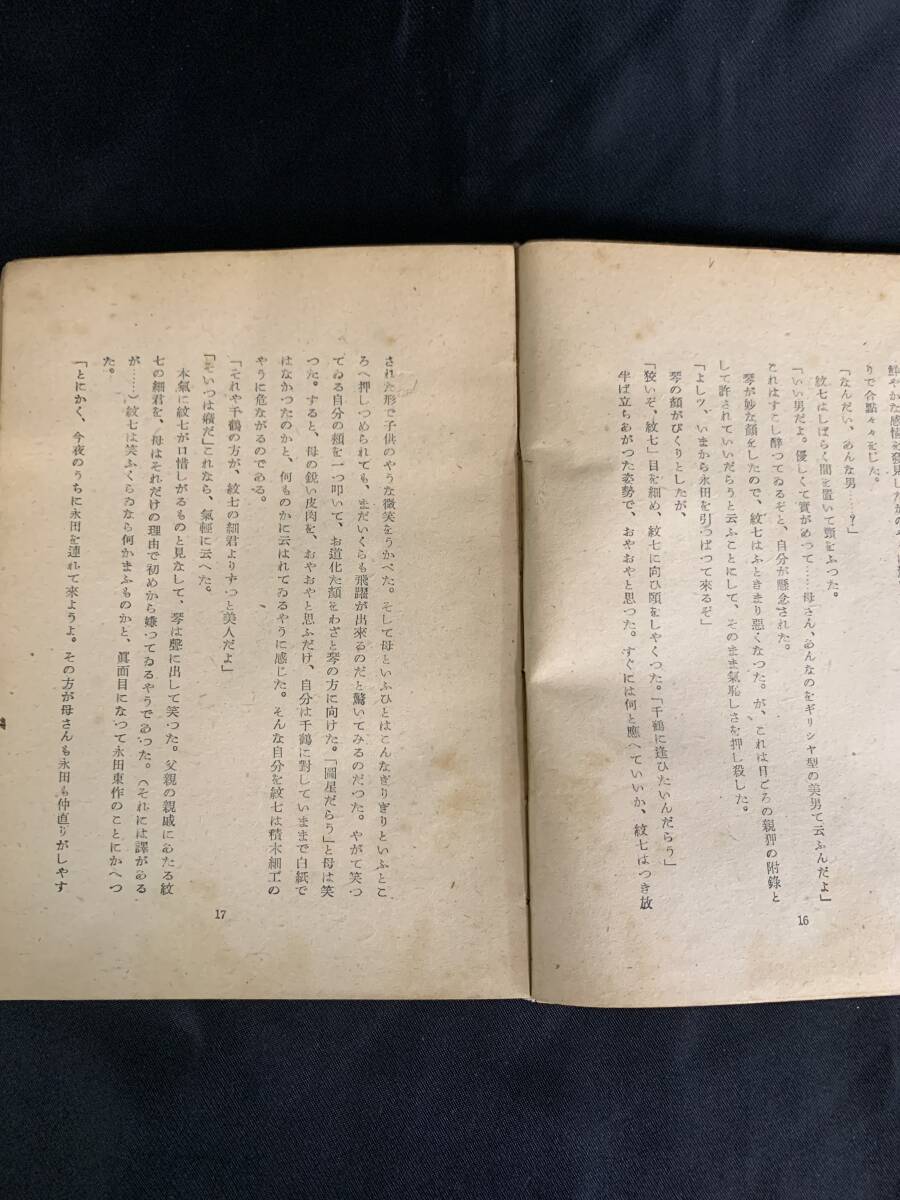 りで合點々々をした。
「なんだい、あんな男……？」
紋七はしばらく間を置いて顎をふつた。
「いい男だよ。優しくて實があつて……母さん、あんなのをギリシヤ型の美男て云ふんだよ」
これはすこし醉つてゐるぞと、自分が懸念された。
琴が妙な顏をしたので、紋七はふときまり惡くなつた。が、これは日ごろの親狎の附錄と
して許されていいだらうと云ふことにして、そのまま氣恥しさを押し殺した。
「よしツ、いまから永田を引つぱつて來るぞ」
琴の顏がびくりとしたが、
「狡いぞ、紋七」目を細め、紋七に向ひ頤をしやくつた。「千鶴に逢ひたいんだらう」
半ば立ちあがつた姿勢で、おやおやと思つた。すぐには何と應へていいか、紋七はつき放
16
された形で子供のやうな微笑をうかべた。そして母といふひとはこんなぎりぎりといふとこ
ろへ押しつめられても、まだいくらも飛躍が出來るのだと驚いてみるのだつた。やがて笑つ
てゐる自分の頰を一つ叩いて、お道化た顏をわざと琴の方に向けた。「圖星だらう」と母は笑
つた。すると、母の銳い皮肉を、おやおやと思ふだけ、自分は千鶴に對していままで白紙で
はなかつたのかと、何ものかに云はれてゐるやうに感じた。そんな自分を紋七は積木細工の
やうに危ながるのである。
「それや千鶴の方が、紋七の細君よりずつと美人だよ」
「そいつは癪だ」これなら、氣輕に云へた。
本氣に紋七が口惜しがるものと見なして、琴は聲に出して笑つた。父親の親戚にあたる紋
七の細君を、母はそれだけの理由で初めから嫌つてゐるやうであつた。（それには譯がある
が……）紋七は笑ふくらゐなら何かまふものかと、眞面目になつて永田東作のことにかへつ
た。
「とにかく、今夜のうちに永田を連れて來ようよ。その方が母さんも永田も仲直りがしやす
17